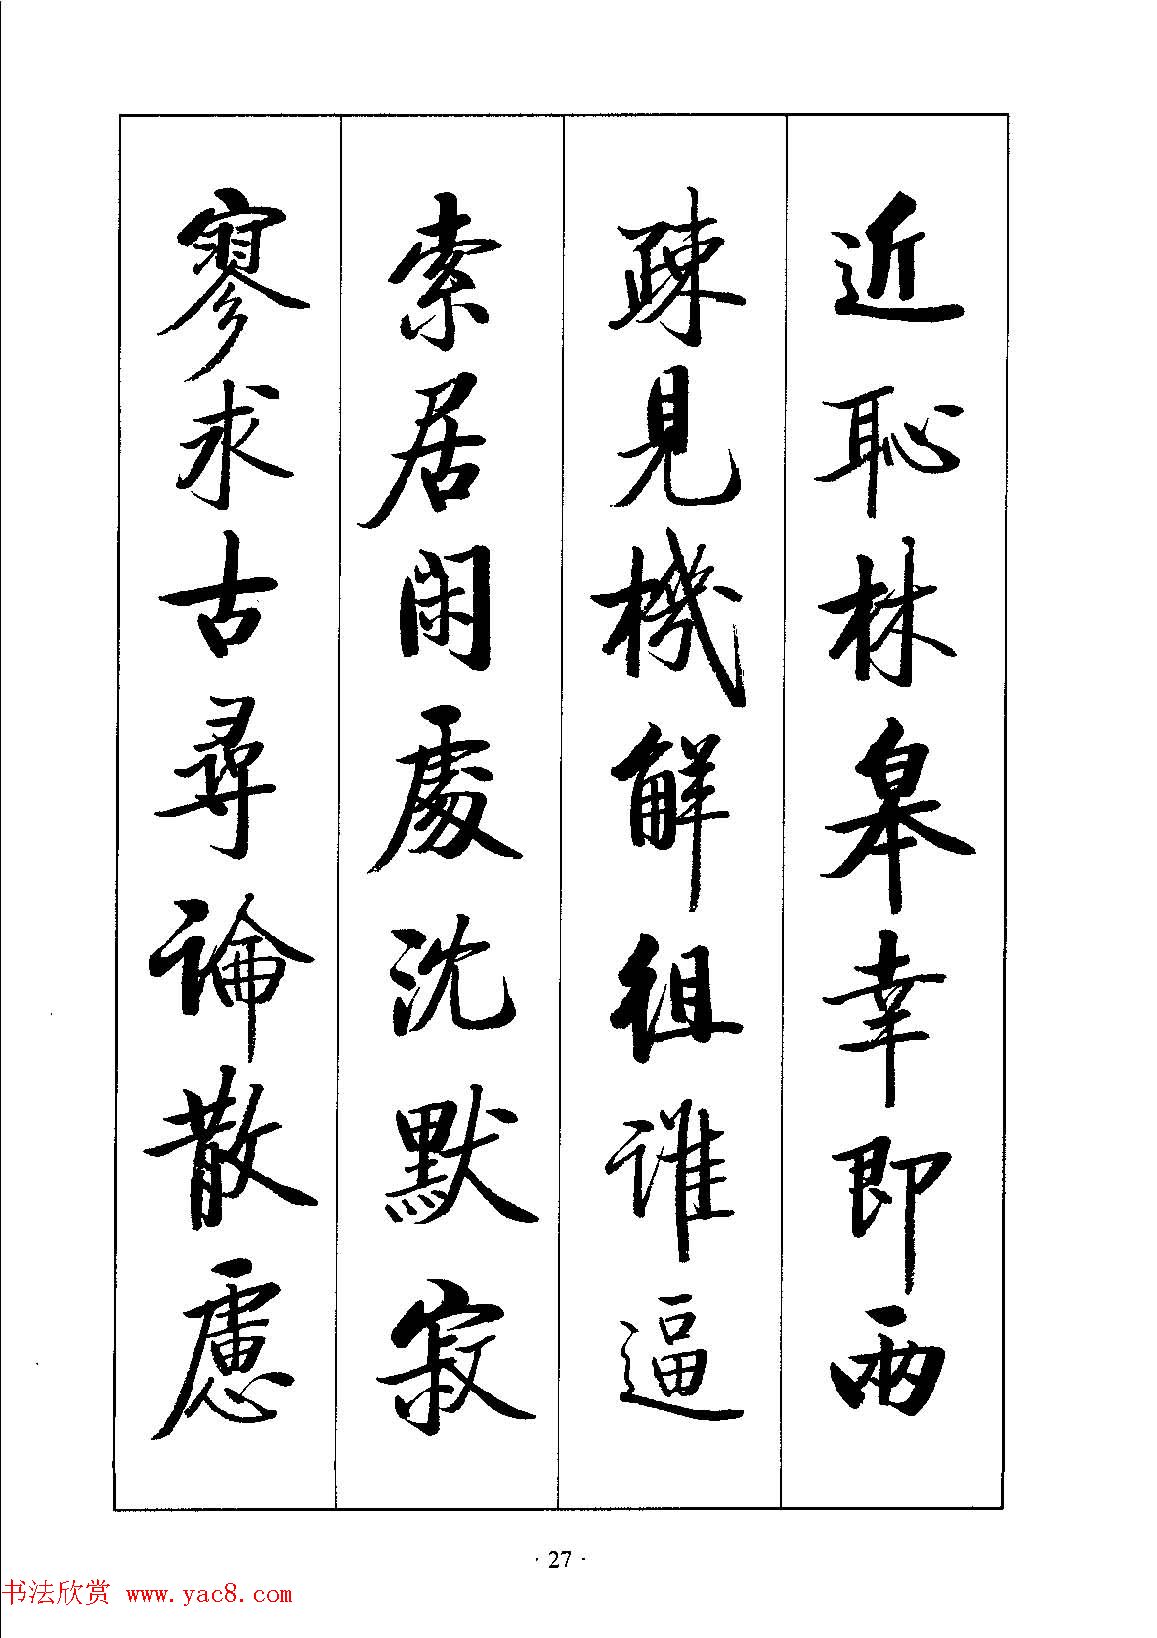 近恥林皋幸即兩
疎見機解組谁逼
索居閑處沈默寂
寥求古尋論散慮
· 27 ·
书法欣赏 www.yac8.com